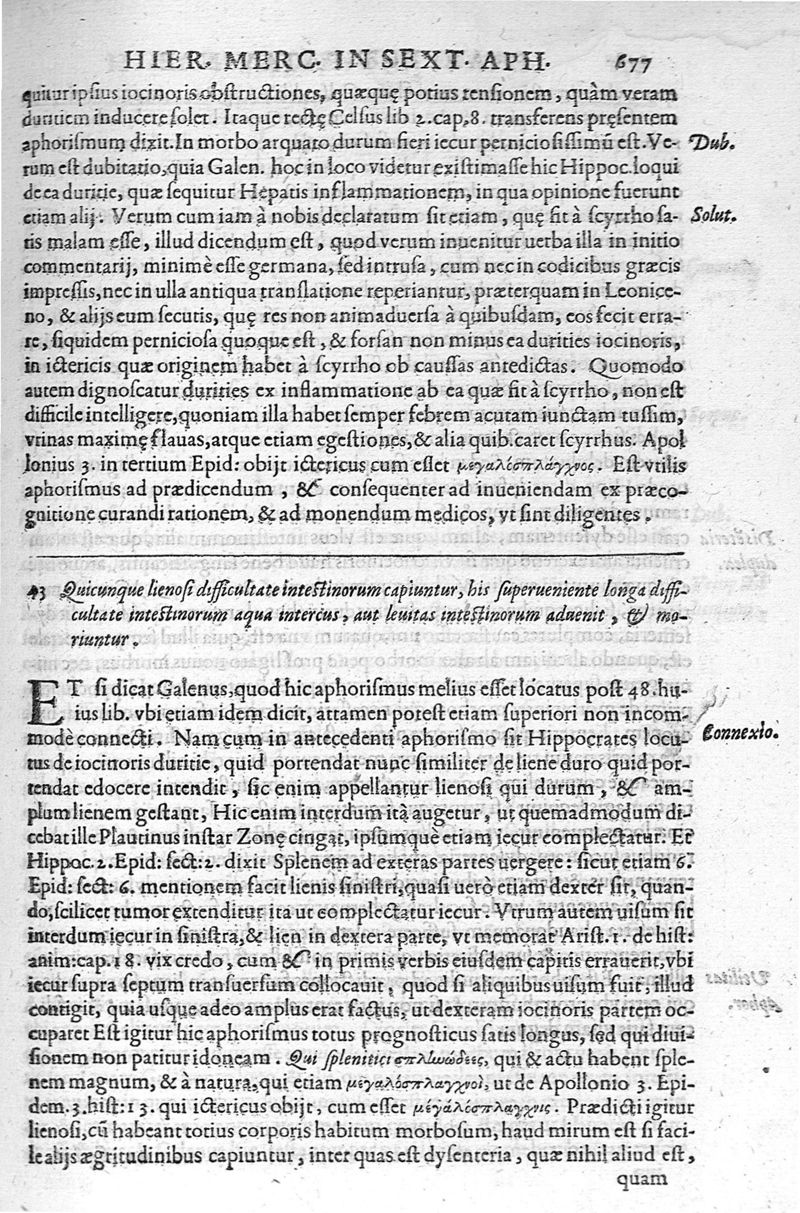 HIER. MERC. IN SEXT. APH. 677
quitur ipsius iocinoris obstructiones, quæquę potius tensionem, quàm veram
duritiem inducere solet. Itaque rectę Celsus lib 2. cap, 8. transferens pręsentem
aphorismum dixit. In morbo arquato durum fieri iecur perniciosissimũ est. Ve-
Dub.
rum est dubitatio, quia Galen. hoc in loco videtur existimasse hic Hippoc. loqui
de ea duritie, quæ sequitur Hepatis inflammationem, in qua opinione fuerunt
etiam alij. Verum cum iam à nobis declaratum sit etiam, quę fit à scyrrho sa-
Solut.
tis malam esse, illud dicendum est, quod verum inuenitur uerba illa in initio
commentarij, minimè esse germana, sed intrusa, cum nec in codicibus græcis
impressis, nec in ulla antiqua translatione reperiantur, præterquam in Leonice-
no, & alijs eum secutis, quę res non animaduersa à quibusdam, eos fecit erra-
re, siquidem perniciosa quoque est, & forsan non minus ea durities iocinoris,
in ictericis quæ originem habet à scyrrho ob caussas antedictas. Quomodo
autem dignoscatur durities ex inflammatione ab ea quæ fit à scyrrho, non est
difficile intelligere, quoniam illa habet semper febrem acutam iunctam tussim,
vrinas maximę flauas, atque etiam egestiones, & alia quib. caret scyrrhus. Apol
lonius 3. in tertium Epid: obijt ictericus cum esset μεγαλόσπλάγχνος. Est vtilis
aphorismus ad prædicendum, & consequenter ad inueniendam ex præco-
gnitione curandi rationem, & ad monendum medicos, vt sint diligentes.
43 Quicunque lienosi difficultate intestinorum capiuntur, his superueniente longa diffi-
cultate intestinorum aqua intercus, aut leuitas intestinorum aduenit, & mo-
riuntur.
ET si dicat Galenus, quod hic aphorismus melius esset locatus post 48. hu-
ius lib. vbi etiam idem dicit, attamen potest etiam superiori non incom-
Connexio.
modè connecti. Nam cum in antecedenti aphorismo sit Hippocrates locu-
tus de iocinoris duritie, quid portendat nunc similiter de liene duro quid por-
tendat edocere intendit, sic enim appellantur lienosi qui durum, & am-
plum lienem gestant, Hic enim interdum ità augetur, ut quemadmodum di-
cebat ille Plautinus instar Zonę cingat, ipsumquè etiam iecur complectatur. Et
Hippoc. 2. Epid: sect: 2. dixit Splenem ad exteras partes uergere: sicut etiam 6.
Epid: sect: 6. mentionem facit lienis sinistri, quasi uerò etiam dexter sit, quan-
do, scilicet tumor extenditur ita ut complectatur iecur. Vtrum autem uisum sit
interdum iecur in sinistra, & lien in dextera parte, vt memorat Arist. 1. de hist:
anim: cap. 18. vix credo, cum & in primis verbis eiusdem capitis errauerit, vbi
iecur supra septum transuersum collocauit, quod si aliquibus uisum fuit, illud
contigit, quia usque adeo amplus erat factus, ut dexteram iocinoris partem oc-
cuparet Est igitur hic aphorismus totus prognosticus satis longus, sed qui diui-
sionem non patitur idoneam. Qui splenitici σπληνώδεες, qui & actu habent sple-
nem magnum, & à natura, qui etiam μεγαλόσπλαγχνοὶ, ut de Apollonio 3. Epi-
dem. 3. hist: 13. qui ictericus obijt, cum esset μέγάλόσπλαγχνις. Prædicti igitur
lienosi, cũ habeant totius corporis habitum morbosum, haud mirum est si faci-
le alijs ægritudinibus capiuntur, inter quas est dysenteria, quæ nihil aliud est,
quam